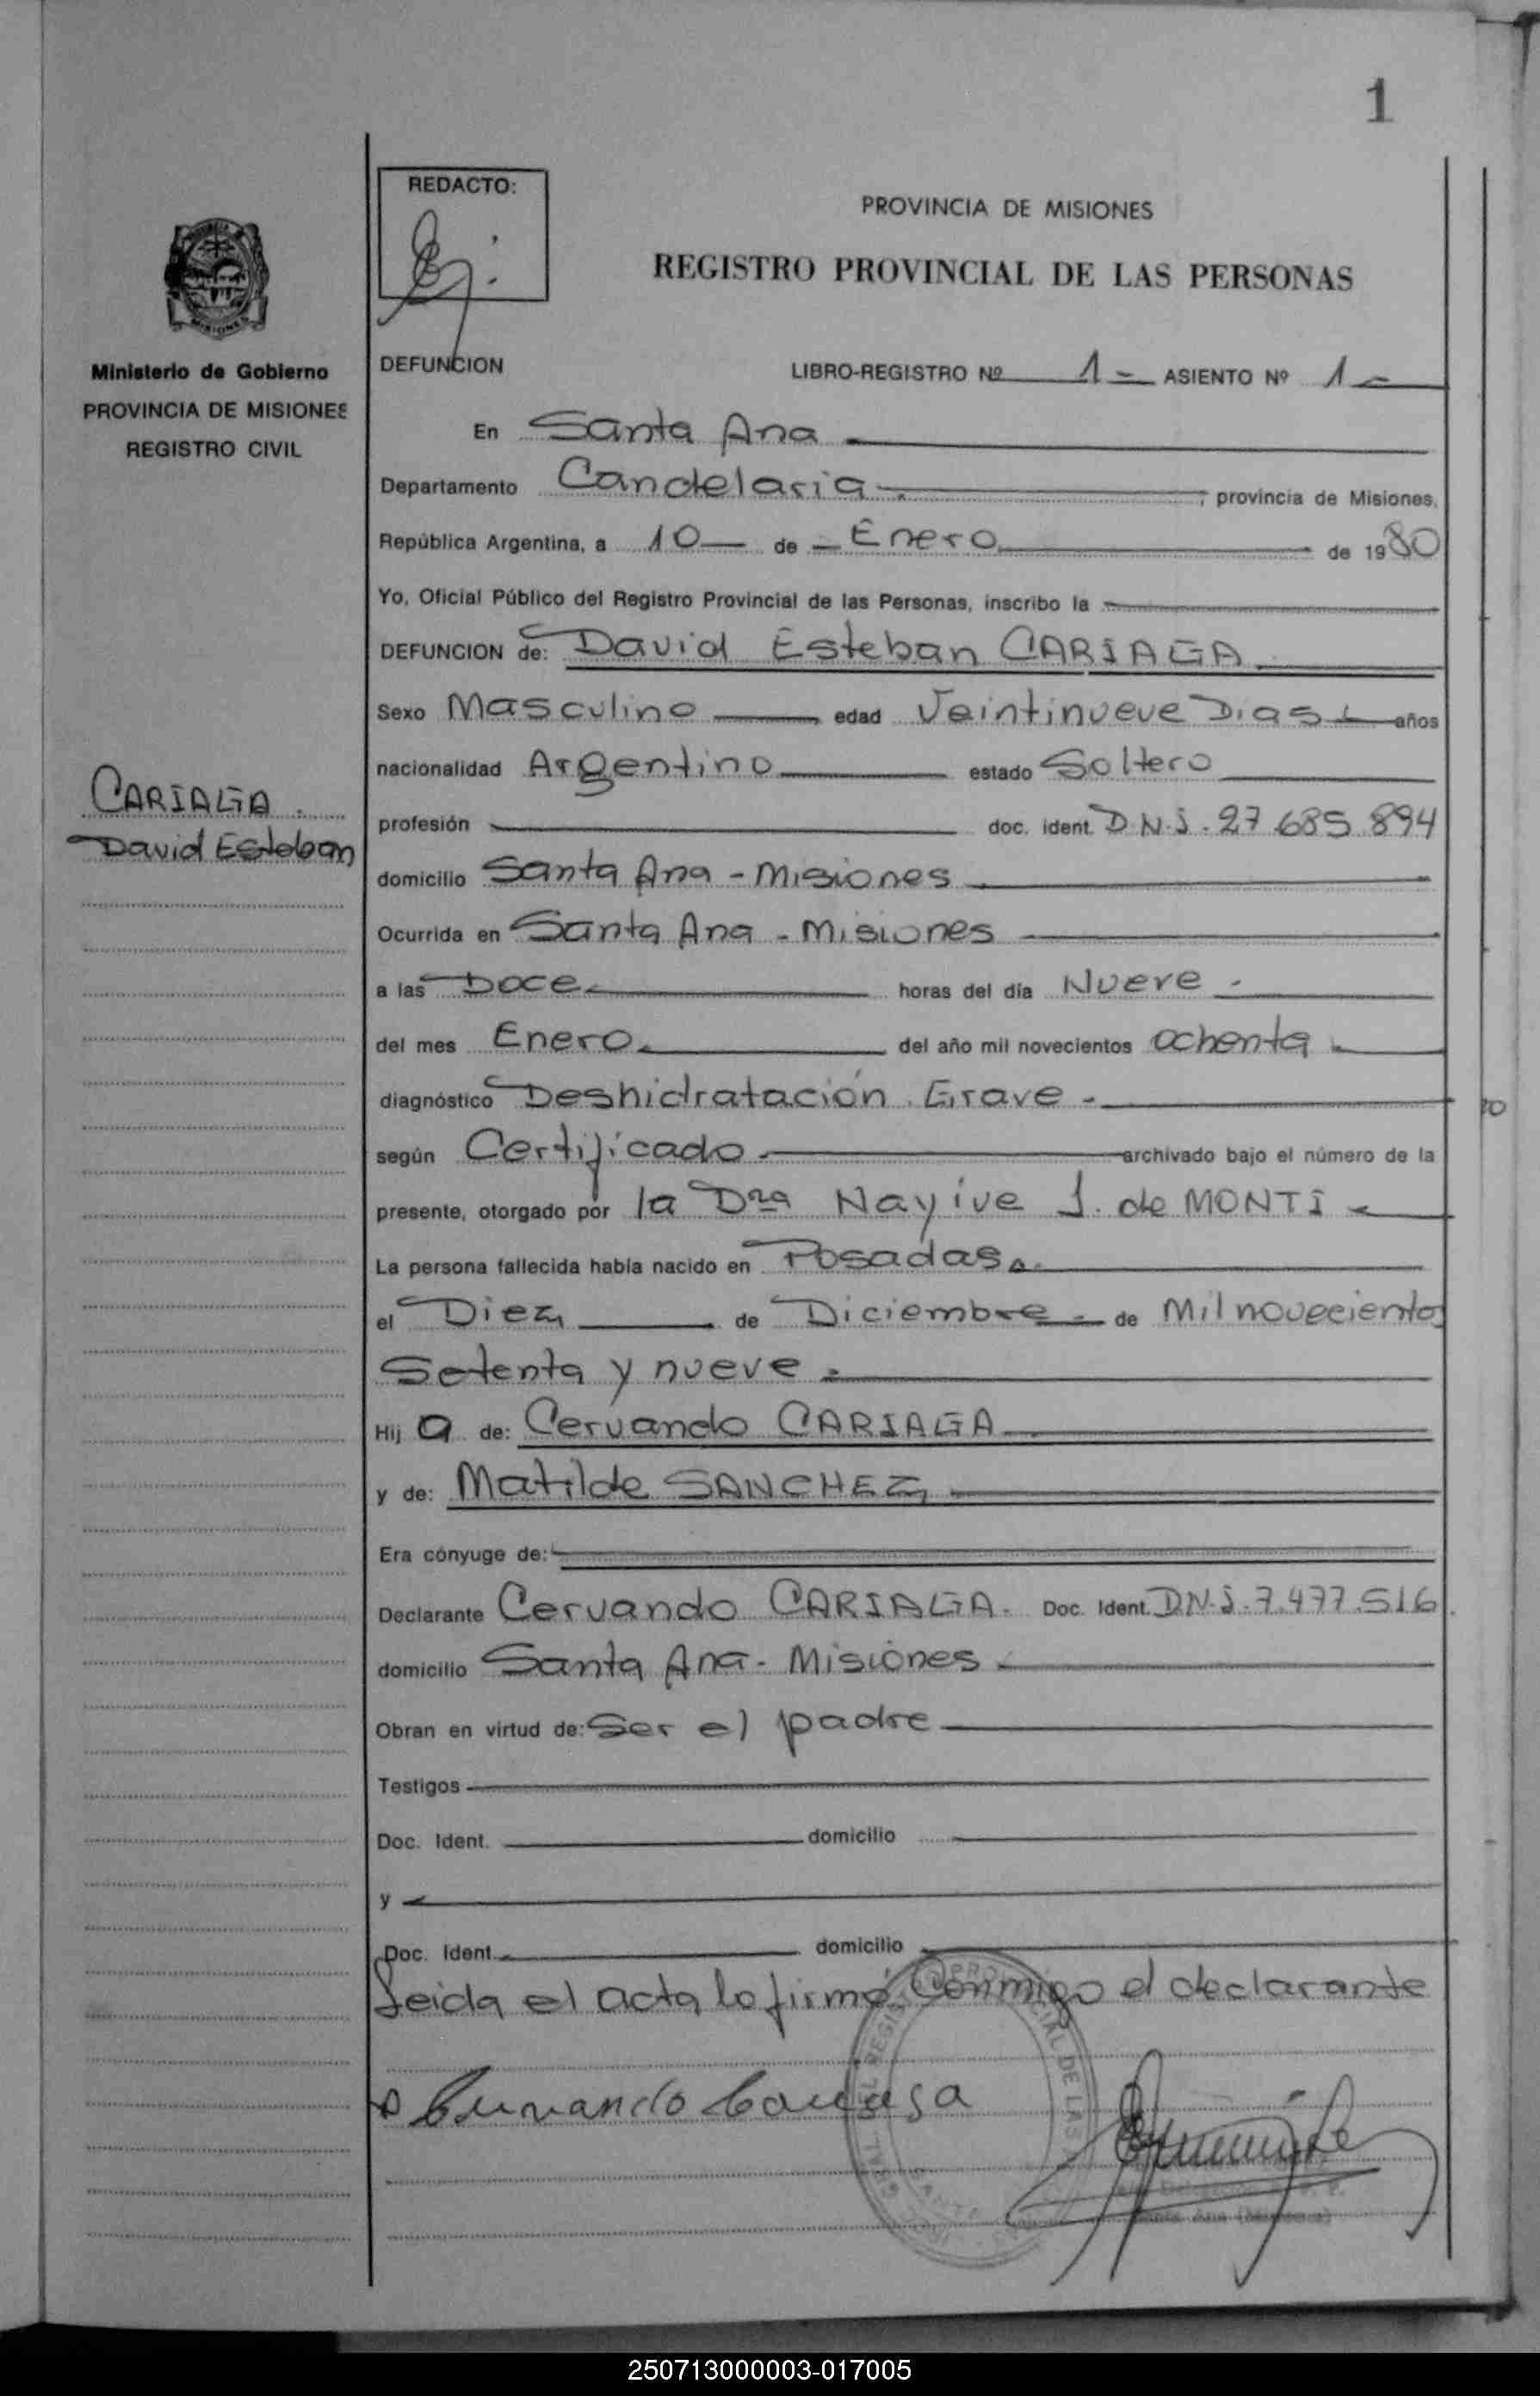 1
REDACTO:
PROVINCIA DE MISIONES
REGISTRO PROVINCIAL DE LAS PERSONAS
MISIONES
Ministerio de Gobierno
PROVINCIA DE MISIONES
REGISTRO CIVIL
DEFUNCION LIBRO-REGISTRO Nº 1- ASIENTO Nº 1-
En Santa Ana
Departamento Candelaria ; provincia de Misiones,
República Argentina, a 10 de Enero de 1980
Yo, Oficial Público del Registro Provincial de las Personas, inscribo la
DEFUNCION de: David Esteban CARIAGA
Sexo Masculino edad Veintinueve Dias años
nacionalidad Argentino estado Soltero
CARIAGA
David Esteban
profesión doc. ident. D.N.I. 27.685.894
domicilio Santa Ana - Misiones
Ocurrida en Santa Ana - Misiones
a las Doce horas del día Nueve
del mes Enero. del año mil novecientos ochenta
diagnóstico Deshidratación Grave -
según Certificado archivado bajo el número de la
presente, otorgado por la Dra Nayive J. de MONTI
La persona fallecida había nacido en Posadas
el Diez de Diciembre de Mil novecientos
Setenta y nueve
Hij o de: Cervando CARIAGA
y de: Matilde SANCHEZ
Era cónyuge de:
Declarante Cervando CARIAGA. Doc. Ident. D.N.I. 7.477.516
domicilio Santa Ana - Misiones
Obran en virtud de: Ser el padre
Testigos
Doc. Ident. domicilio
y
Doc. Ident. domicilio
Leida el acta lo firmó Conmigo el declarante
Cervando Cariaga
Santa Ana (Misiones)
250713000003-017005